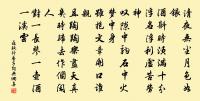 清夜無塵月色如
銀
酒斟時須滿十分
浮名浮利虛苦勞
神
隙中駒石中火
夢中身
雖抱文章開口誰
親
且陶陶樂盡天真
幾時歸去作個閒
人
對一張琴一壺酒
一溪雲